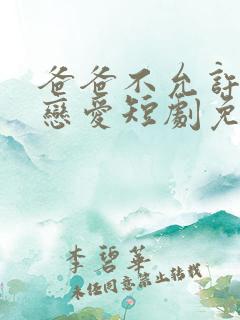 爸爸不允許
戀愛短劇免
李碧華
未經同意禁止轉載